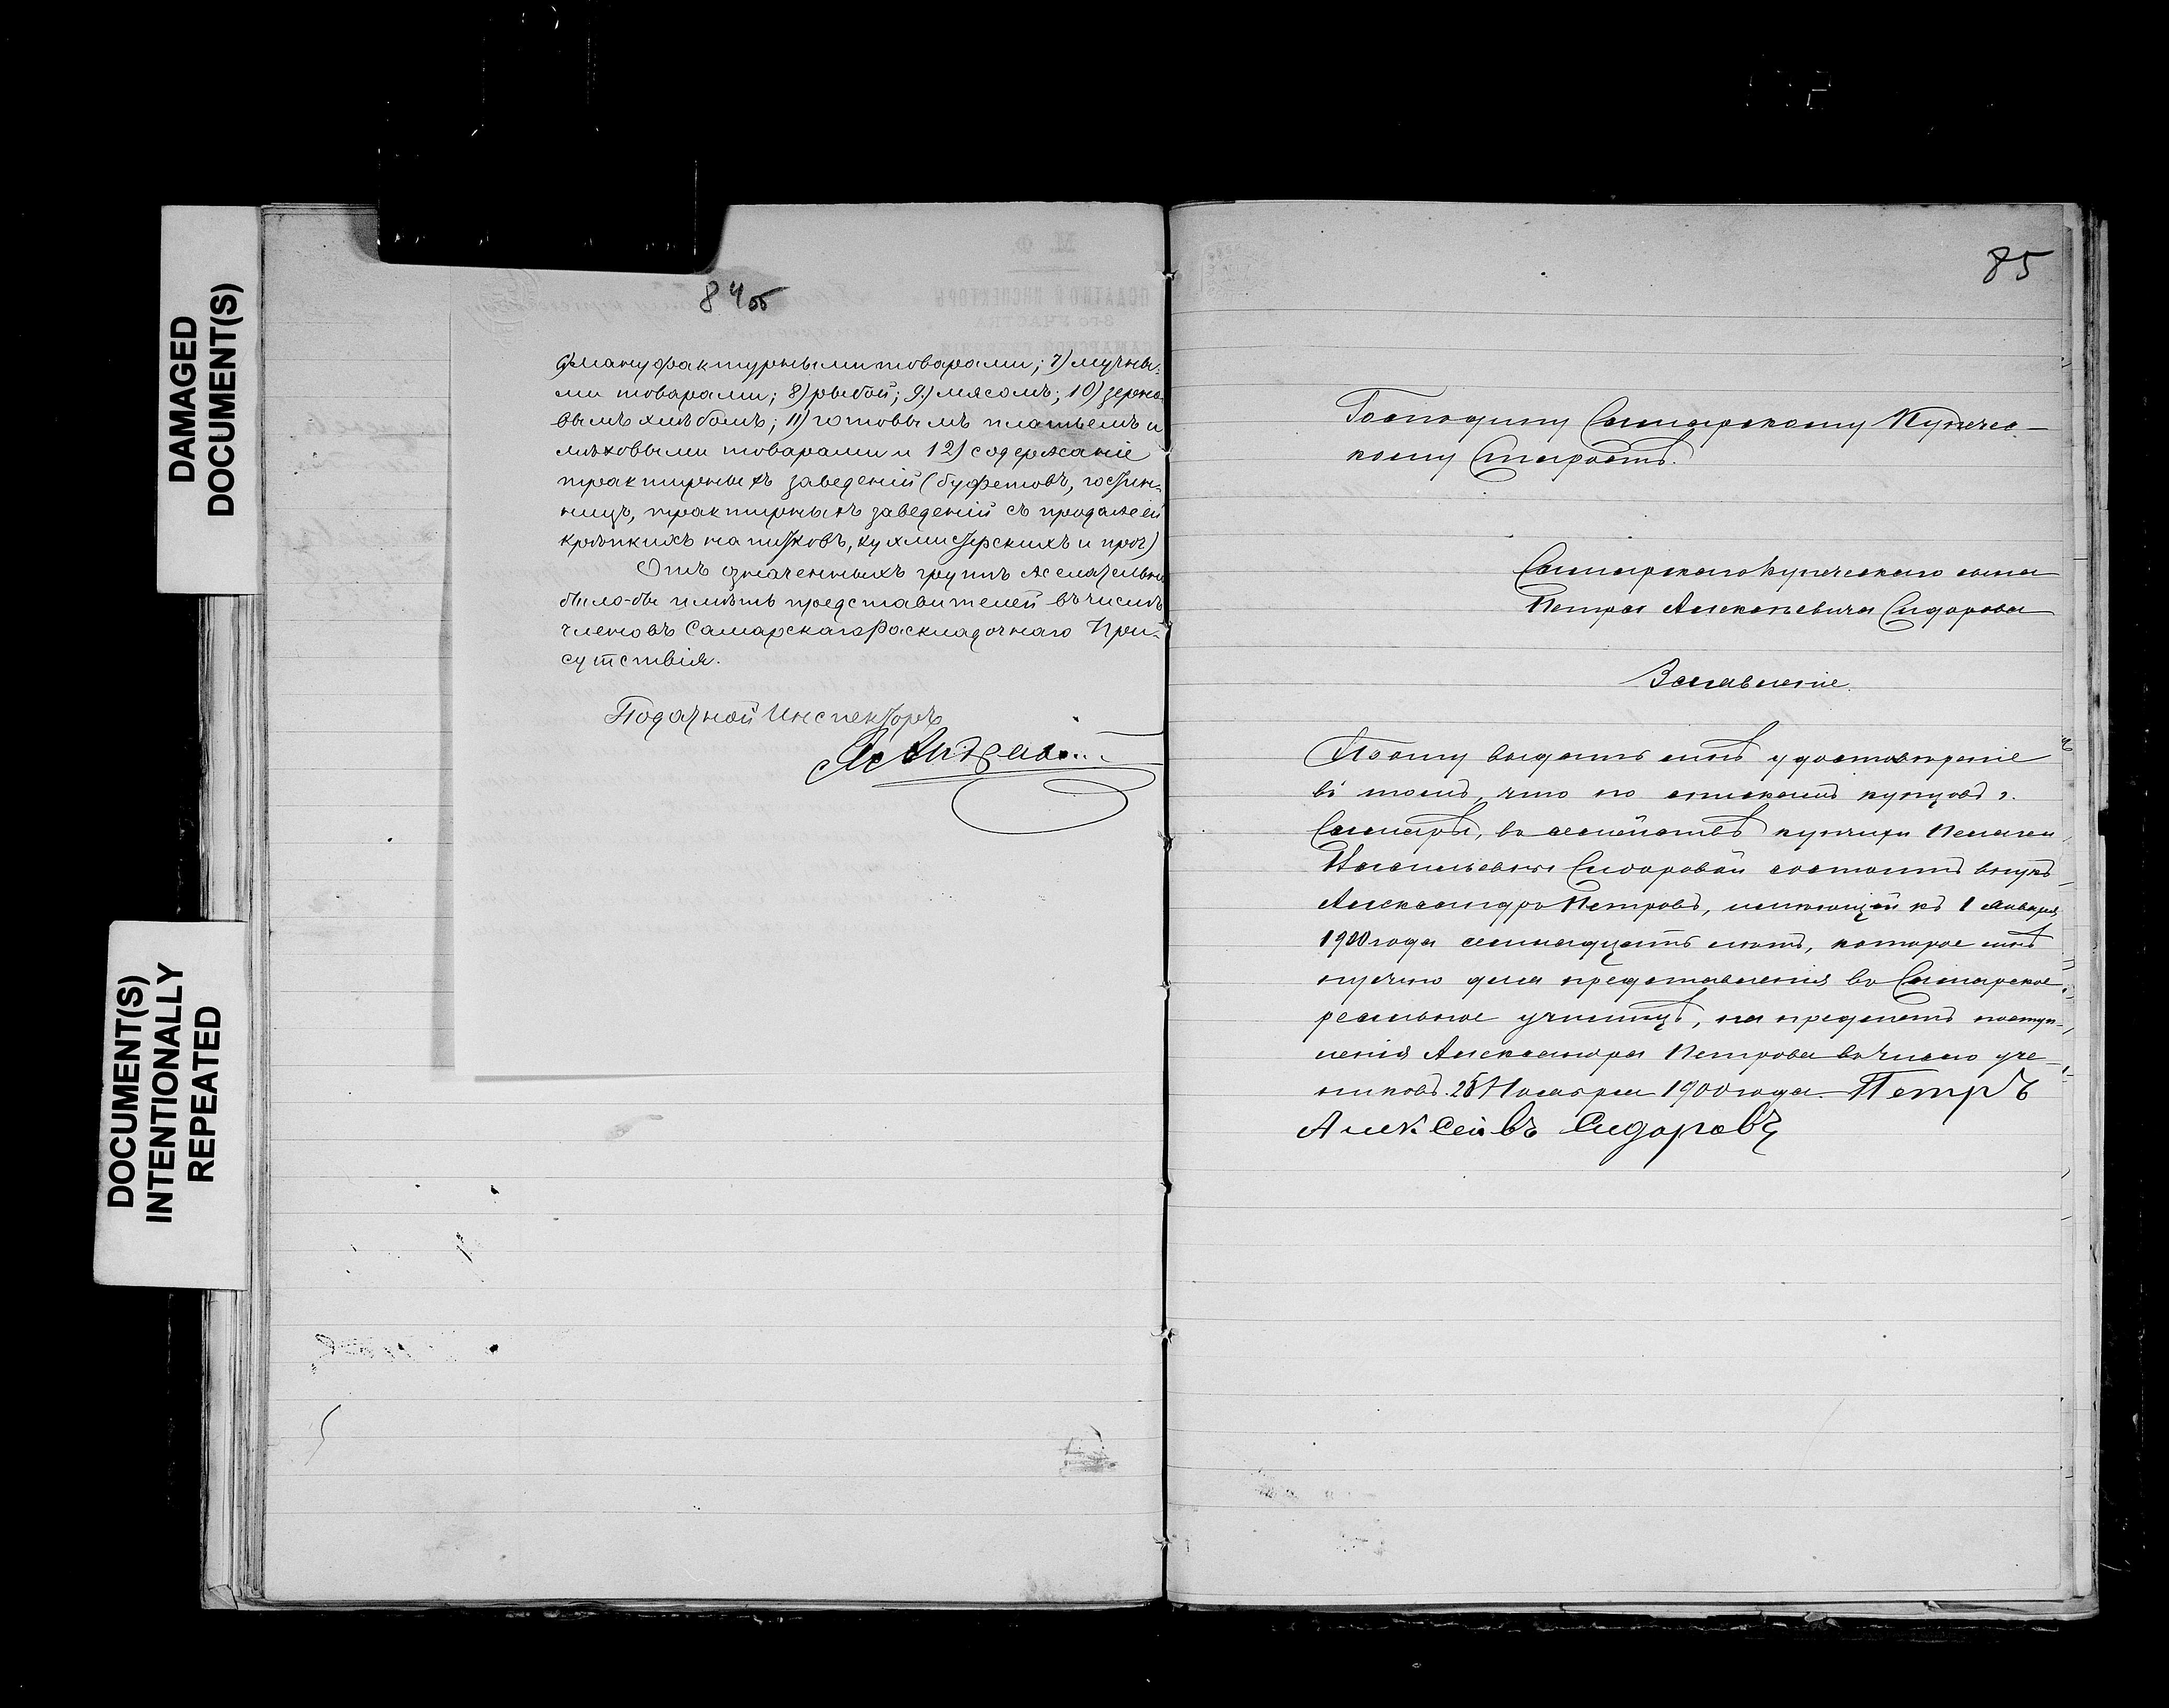 DAMAGED
DOCUMENT(S)
DOCUMENT(S)
INTENTIONALLY
REPEATED
84об
6) мануфактурными товарами; 7) мучны-
ми товарами; 8) рыбой; 9) мясомъ; 10) зерно-
вымъ хлѣбомъ; 11) готовымъ платьемъ и
мѣховыми товарами и 12) содержаніе
трактирныхъ заведеній (буфетовъ, гостин-
ницъ, трактирныхъ заведеній съ продажей
крѣпкихъ напитковъ, кухмистерскихъ и проч)
Отъ означенныхъ группъ желательно
было-бы имѣть представителей въ числѣ
членовъ Самарскаго Раскладочнаго При-
сутствія.
Податной Инспекторъ
85
Господину Самарскому Купечес-
кому Старостѣ.
Самарскаго купеческаго сына
Петра Алексѣевича Сидорова
Заявленіе.
Прошу выдать мнѣ удостовѣреніе
въ томъ, что по спискамъ купцовъ г.
Самары, въ семействѣ купчихи Пелагеи
Васильевны Сидоровой состоитъ внукъ
Александръ Петровъ, имѣющій къ 1 Января
1900 года семнадцать лѣтъ, которое мнѣ
нужно для представленія въ Самарское
реальное училище, на предметъ поступ-
ленія Александра Петрова въ число уче-
никовъ. 25 Ноября 1900 года. Петръ
Алексеівъ Сидоровъ